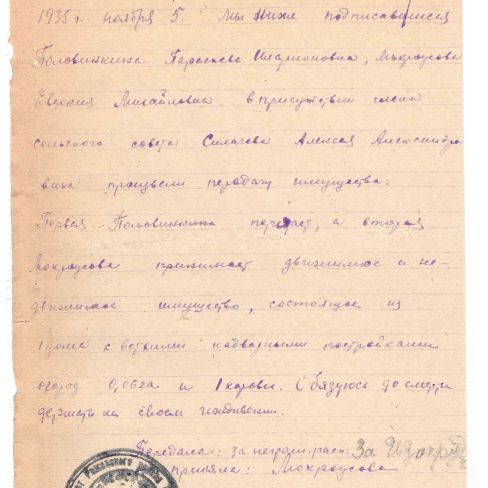 1935 г. ноября 5. Мы ниже подписавшиеся
Половинкина Парасковья Иларионовна, Мокроусова
Евдокия Михайловна в присутствии члена
сельского совета Силачева Алексея Александро
вича произвели передачу имущества:
Первая Половинкина передает, а вторая
Мокроусова принимает движимое и не-
движимое имущество, состоящее из
1 дома с ветхими надворными постройками
огород 0,06 га и 1 коровы. Обязуюсь до смерти
держать на своем иждивении.
Передала: за неграм. расп: За
приняла: Мокроусова